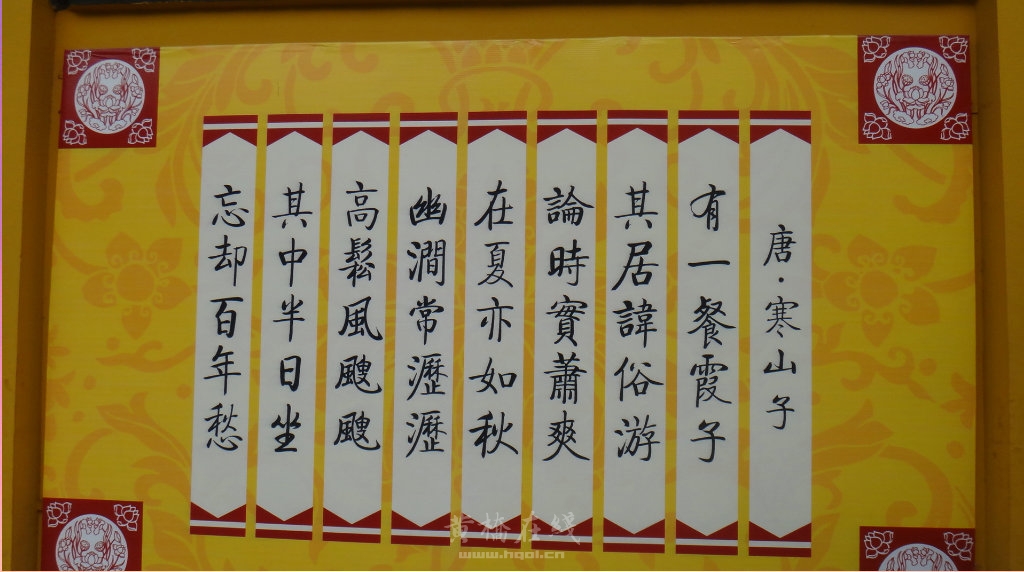 唐·寒山子
有一餐霞子
其居諱俗游
論時實蕭爽
在夏亦如秋
幽澗常瀝瀝
高鬆風颼颼
其中半日坐
忘却百年愁
黄橋在线
www.hqol.cn